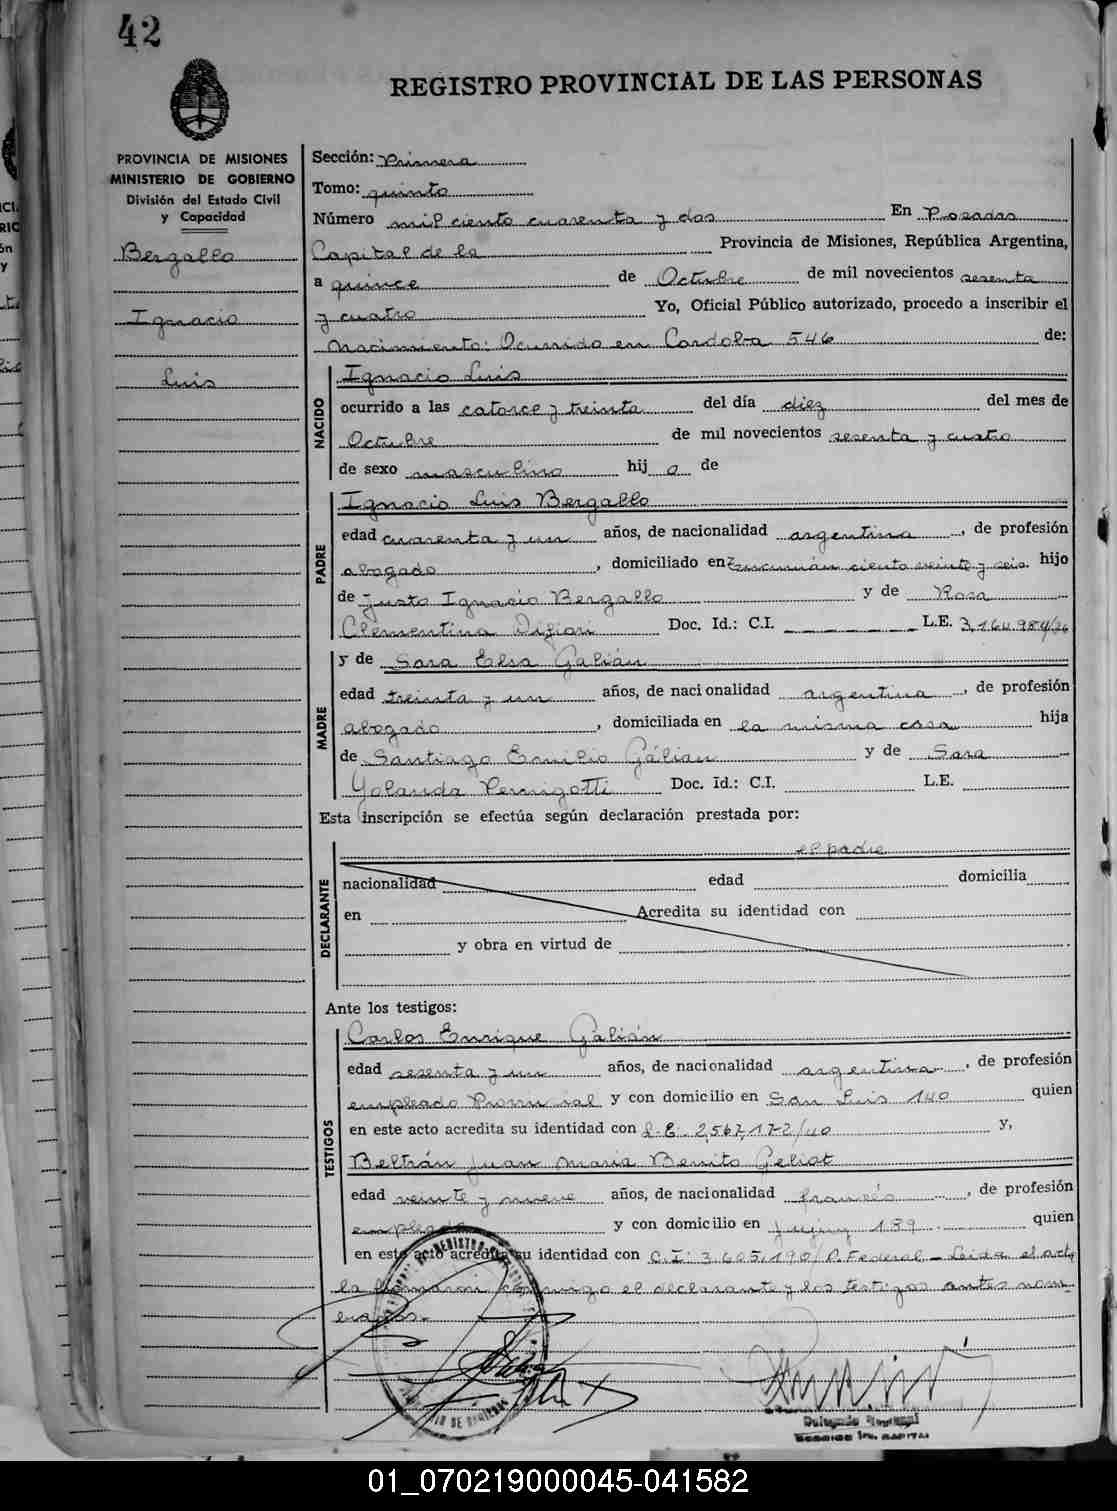 42
REGISTRO PROVINCIAL DE LAS PERSONAS
PROVINCIA DE MISIONES
MINISTERIO DE GOBIERNO
División del Estado Civil
y Capacidad
Bergallo
Ignacio
Luis
Sección: Primera
Tomo: quinto
Número mil ciento cuarenta y dos En Posadas
Capital de la Provincia de Misiones, República Argentina,
a quince de Octubre de mil novecientos sesenta
y cuatro Yo, Oficial Público autorizado, procedo a inscribir el
nacimiento: Ocurrido en Cordoba 546 de:
NACIDO
Ignacio Luis
ocurrido a las catorce y treinta del día diez del mes de
Octubre de mil novecientos sesenta y cuatro
de sexo masculino hij o de
PADRE
Ignacio Luis Bergallo
edad cuarenta y un años, de nacionalidad argentina, de profesión
abogado, domiciliado en Tucumán ciento veinte y seis hijo
de Justo Ignacio Bergallo y de Rosa
Clementina Doc. Id.: C.I. L.E. 3.164.984/36
MADRE
y de Sara Elsa Galián
edad treinta y un años, de nacionalidad argentina, de profesión
abogado, domiciliada en la misma casa hija
de Santiago Emilio Gálian y de Sara
Yolanda Doc. Id.: C.I. L.E.
Esta inscripción se efectúa según declaración prestada por:
DECLARANTE
el padre
nacionalidad edad domicilia
en Acredita su identidad con
y obra en virtud de
Ante los testigos:
TESTIGOS
Carlos Enrique Galián
edad sesenta y un años, de nacionalidad argentina, de profesión
empleado Provincial y con domicilio en San Luis 140 quien
en este acto acredita su identidad con L.E. 2,567,172/40 y,
Beltrán Juan Maria Benito Geliot
edad veinte y nueve años, de nacionalidad francés, de profesión
empleado y con domicilio en Jujuy 189 quien
en este acto acredita su identidad con C.I: 3.605.190/P. Federal - Leida el acta
la firmaron conmigo el declarante y los testigos antes nom-
brados.-
Delegado
01_070219000045-041582